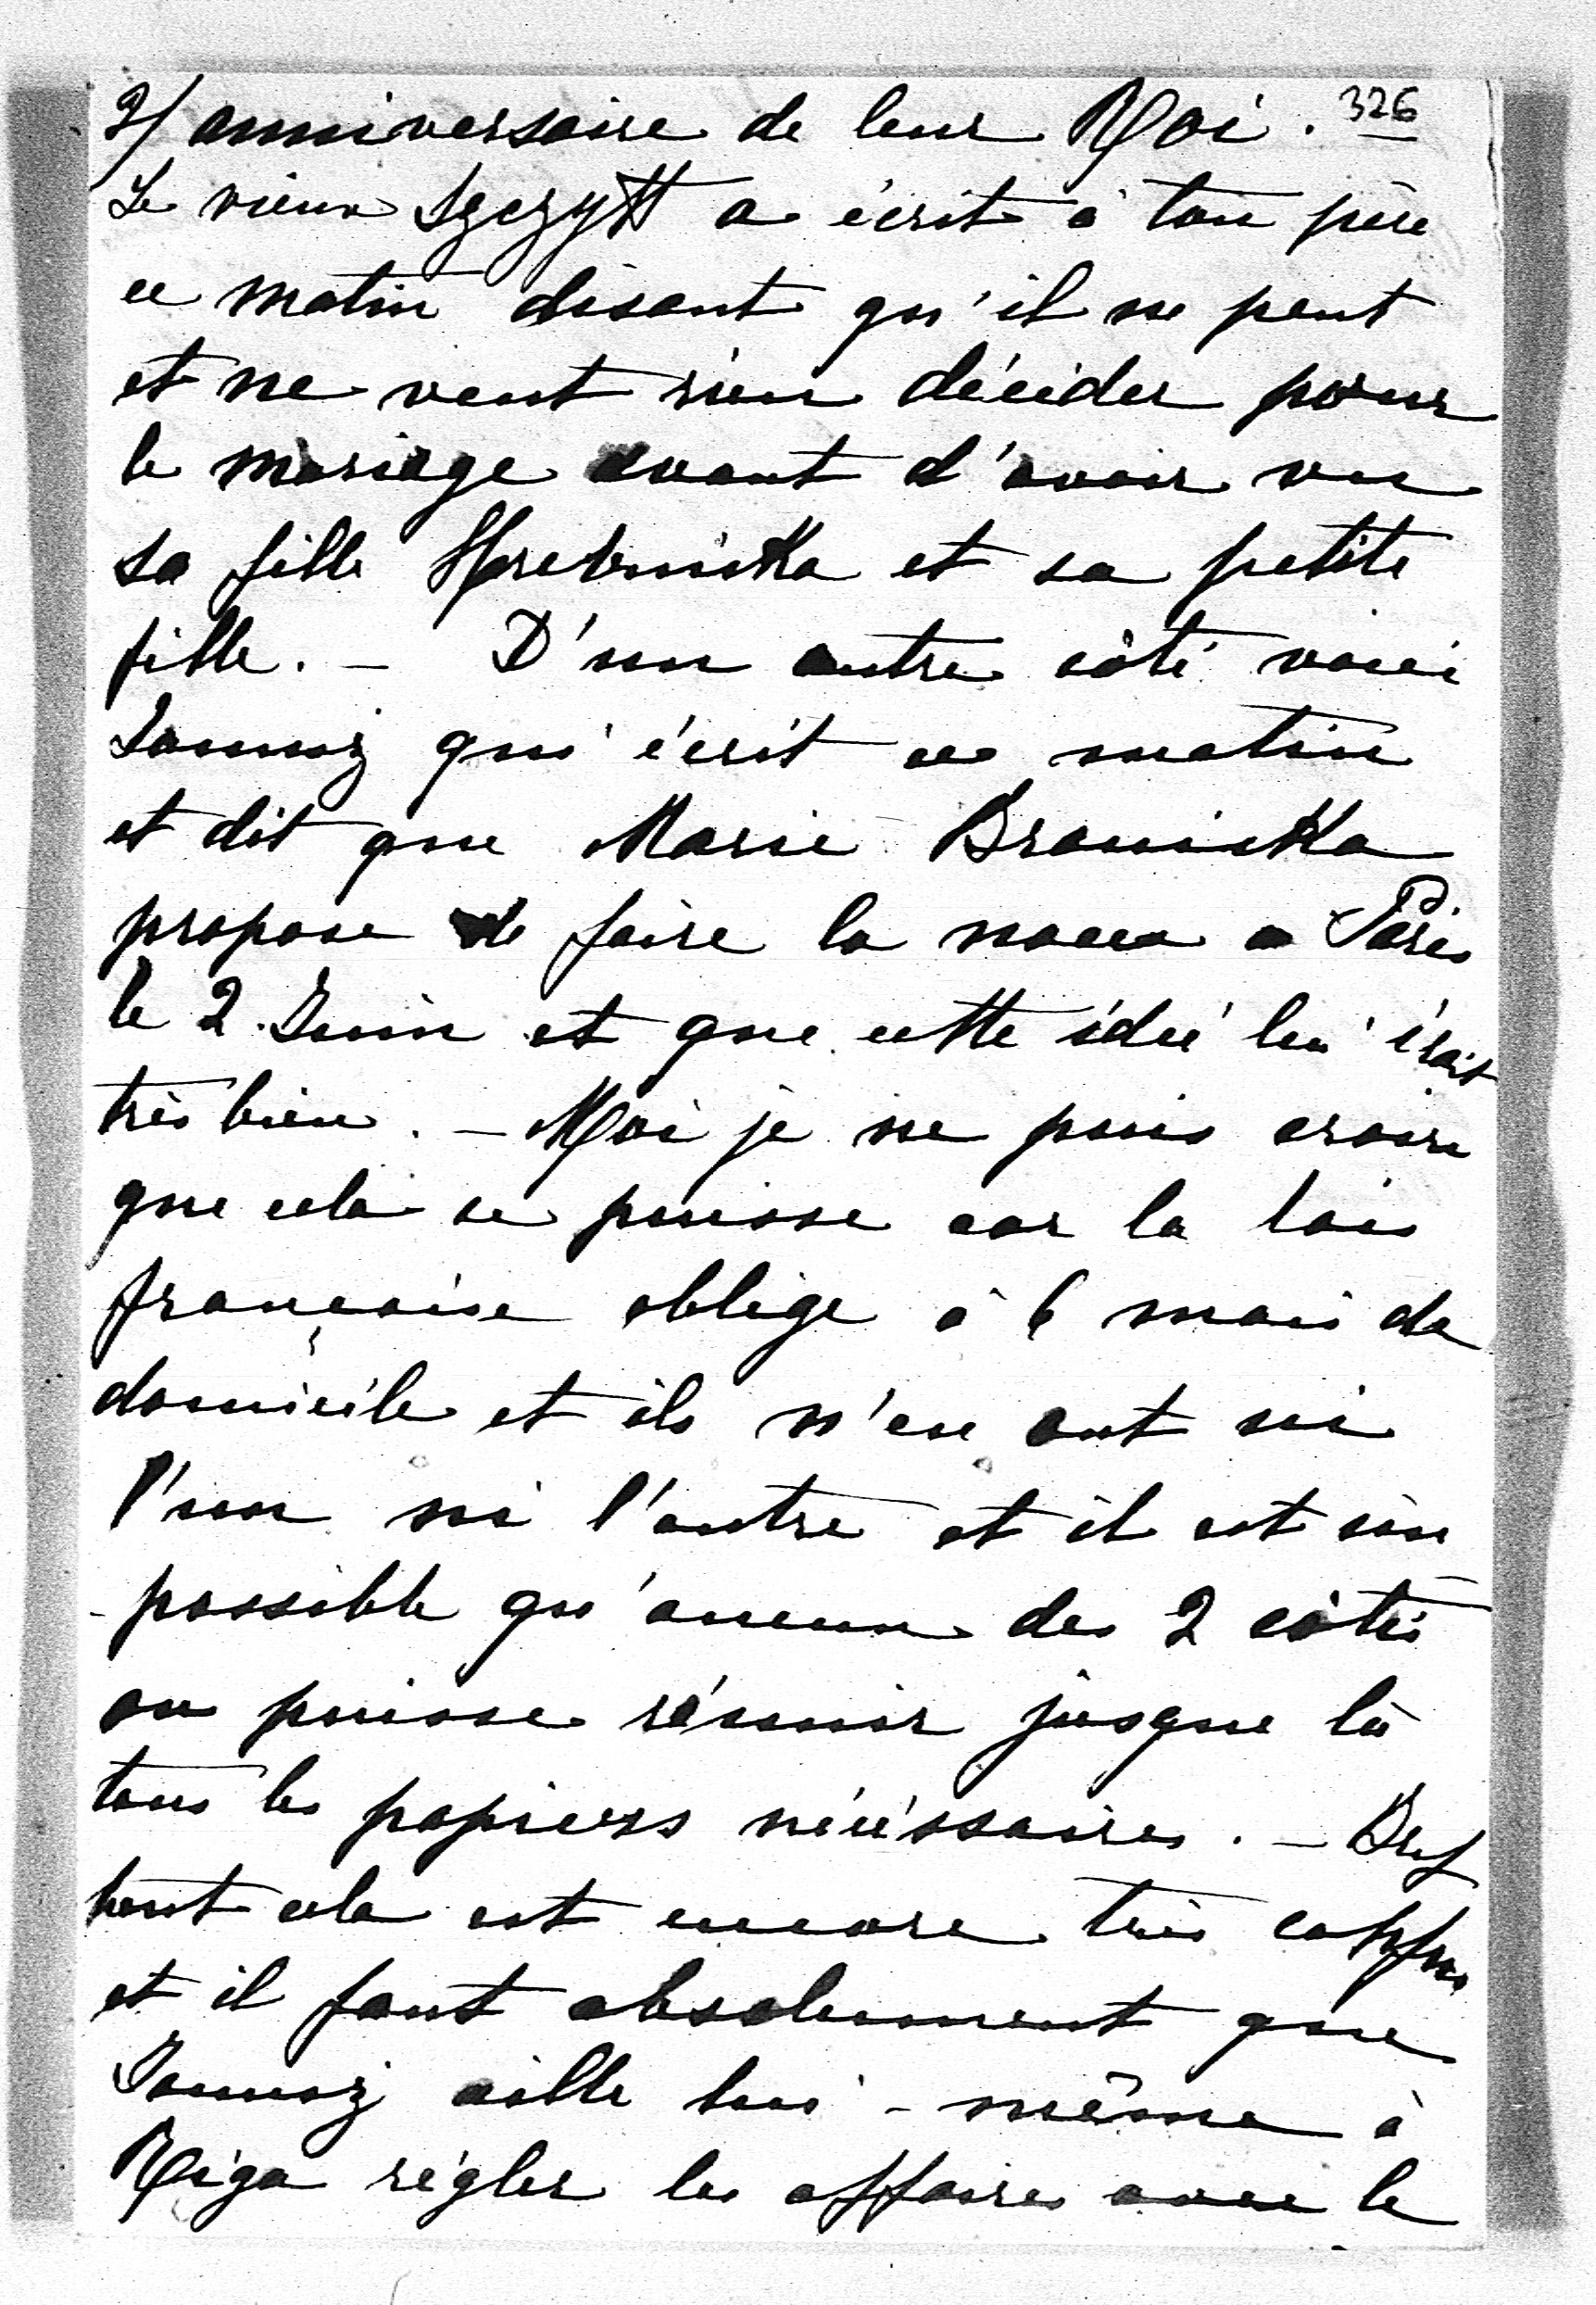 2/ anniversaire de leur Roi. 326
Le vieux Szczytt a écrit à ton père
ce matin disant qu'il ne peut
et ne veut rien décider pour
le mariage avant d'avoir vu
sa fille et sa petite
fille. — D'un autre côté voici
qui écrit ce matin
et dit que Marie Branicka
propose de faire la noce a Paris
le 2 Juin et que cette idée lui
très bien. — Moi je ne puis croire
que cela se puisse car la loi
française oblige à 6 mois de
domicile et ils n'en ont ni
l'un ni l'autre et il est im
-possible qu'aucun des 2 côtés
on puisse réunir jusque là
tous les papiers nécéssaires. — Bref
tout cela est encore très confus
et il faut absolument que
aille lui-même à
Riga régler les affaires avec le